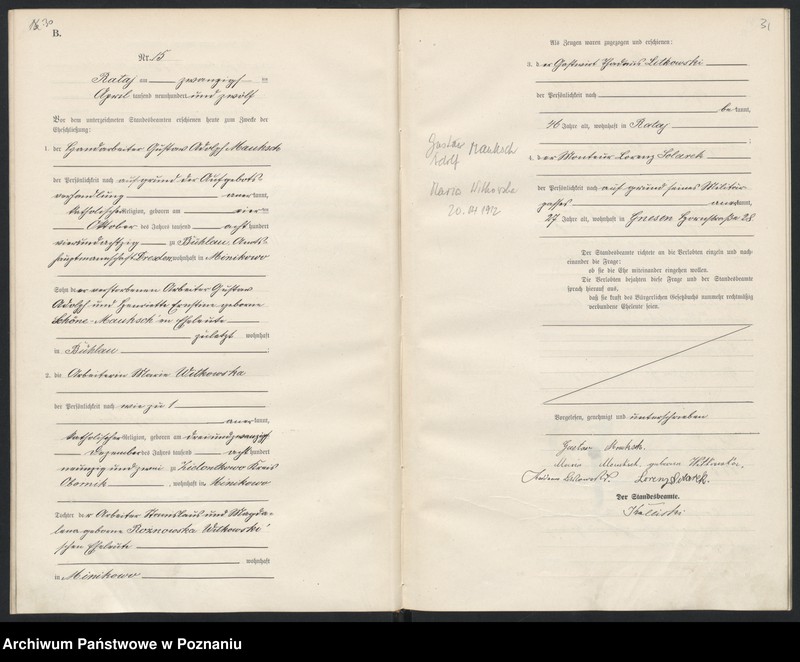 30
B.
Nr. 15
Rataj am zwanzigst en
April tausend neunhundert und zwölf
Vor dem unterzeichneten Standesbeamten erschienen heute zum Zwecke der
Eheschließung:
1. der Handarbeiter Gustav Adolph Mauksch
der Persönlichkeit nach auf grund der Aufgebots
verhandlung anerkannt,
katholischer Religion, geboren am vier ten
Oktober des Jahres tausend acht hundert
vierundachtzig zu Bühlau, Amts
hauptmannschaft Dresden wohnhaft in Minikowo
Sohn des verstorbenen Arbeiter Gustav
Adolph und Henriette Ernstine geborne
Schöne - Mauksch'en Eheleute
zuletzt wohnhaft
in Bühlau
2. die Arbeiterin Maria Witkowska
der Persönlichkeit nach wie zu 1
anerkannt,
katholischer Religion, geboren am dreiundzwanzigst
Dezember des Jahres tausend acht hundert
neunzig und zwei zu Zielontkowo Kreis
Obornik, wohnhaft in Minikowo
Tochter der Arbeiter Stanislaus und Magda-
lena geborne Roznowska Witkowski'
schen Eheleute
wohnhaft
in Minikowo
31
Als Zeugen waren zugezogen und erschienen:
3. der Gastwirt Thadäus Lelkowski
der Persönlichkeit nach
bekannt,
46 Jahre alt, wohnhaft in Rataj
4. der Monteur Lorenz Solarek
der Persönlichkeit nach auf grund seines Militär
passes anerkannt,
27 Jahre alt, wohnhaft in Gnesen Hornstraße 28
Gustav Adolf Mauksch
Maria Witkowska
20.IV 1912
Der Standesbeamte richtete an die Verlobten einzeln und nach-
einander die Frage:
ob sie die Ehe miteinander eingehen wollen.
Die Verlobten bejahten diese Frage und der Standesbeamte
sprach hierauf aus,
daß sie kraft des Bürgerlichen Gesetzbuchs nunmehr rechtmäßig
verbundene Eheleute seien.
Vorgelesen, genehmigt und unterschrieben
Gustav Mauksch.
Maria Mauksch geborene Witkowska.
Lorenz Solarek.
Der Standesbeamte.
Archiwum Państwowe w Poznaniu